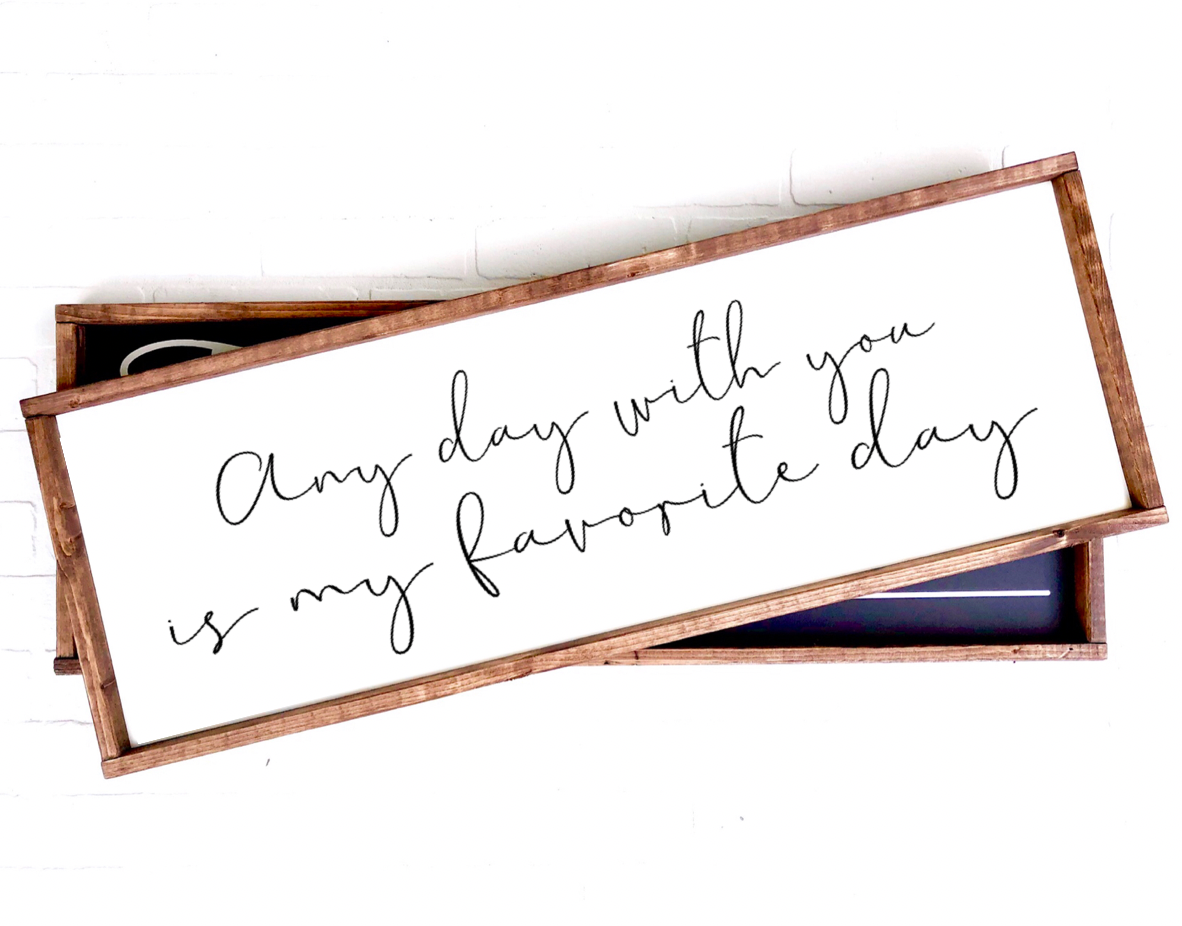 Any day with you
is my favorite day